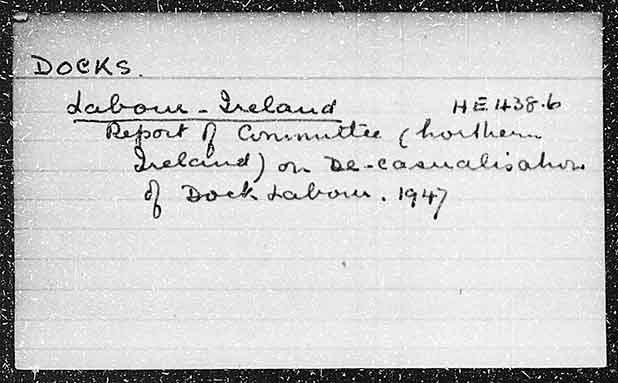 DOCKS.
Labour - Ireland HE.438.6
Report of Committee (Northern
Ireland) on De-casualisation
of Dock Labour. 1947